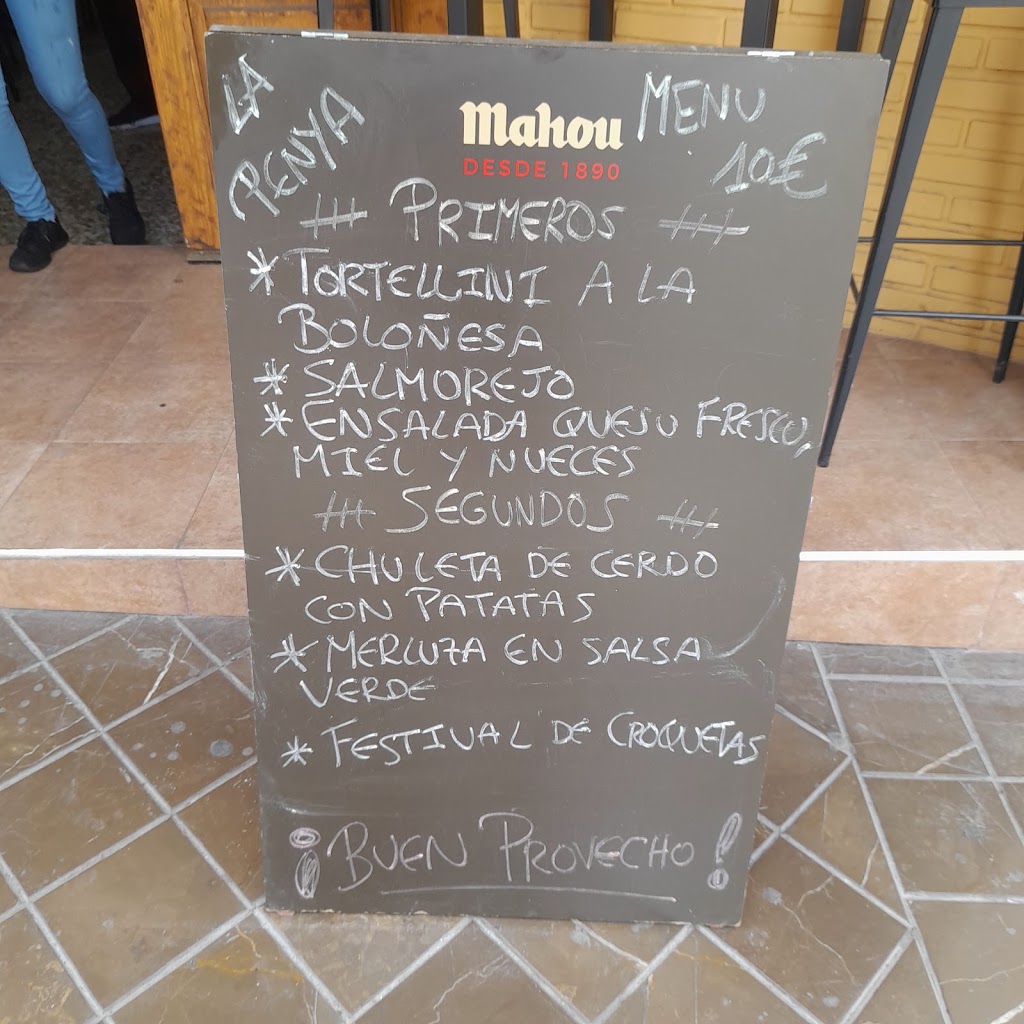 LA
PENYA
Mahou
DESDE 1890
MENU
10€
PRIMEROS
* TORTELLINI A LA
BOLOÑESA
* SALMOREJO
* ENSALADA QUESO FRESCO,
MIEL Y NUECES
SEGUNDOS
* CHULETA DE CERDO
CON PATATAS
* MERLUZA EN SALSA
VERDE
* FESTIVAL DE CROQUETAS
¡BUEN PROVECHO!